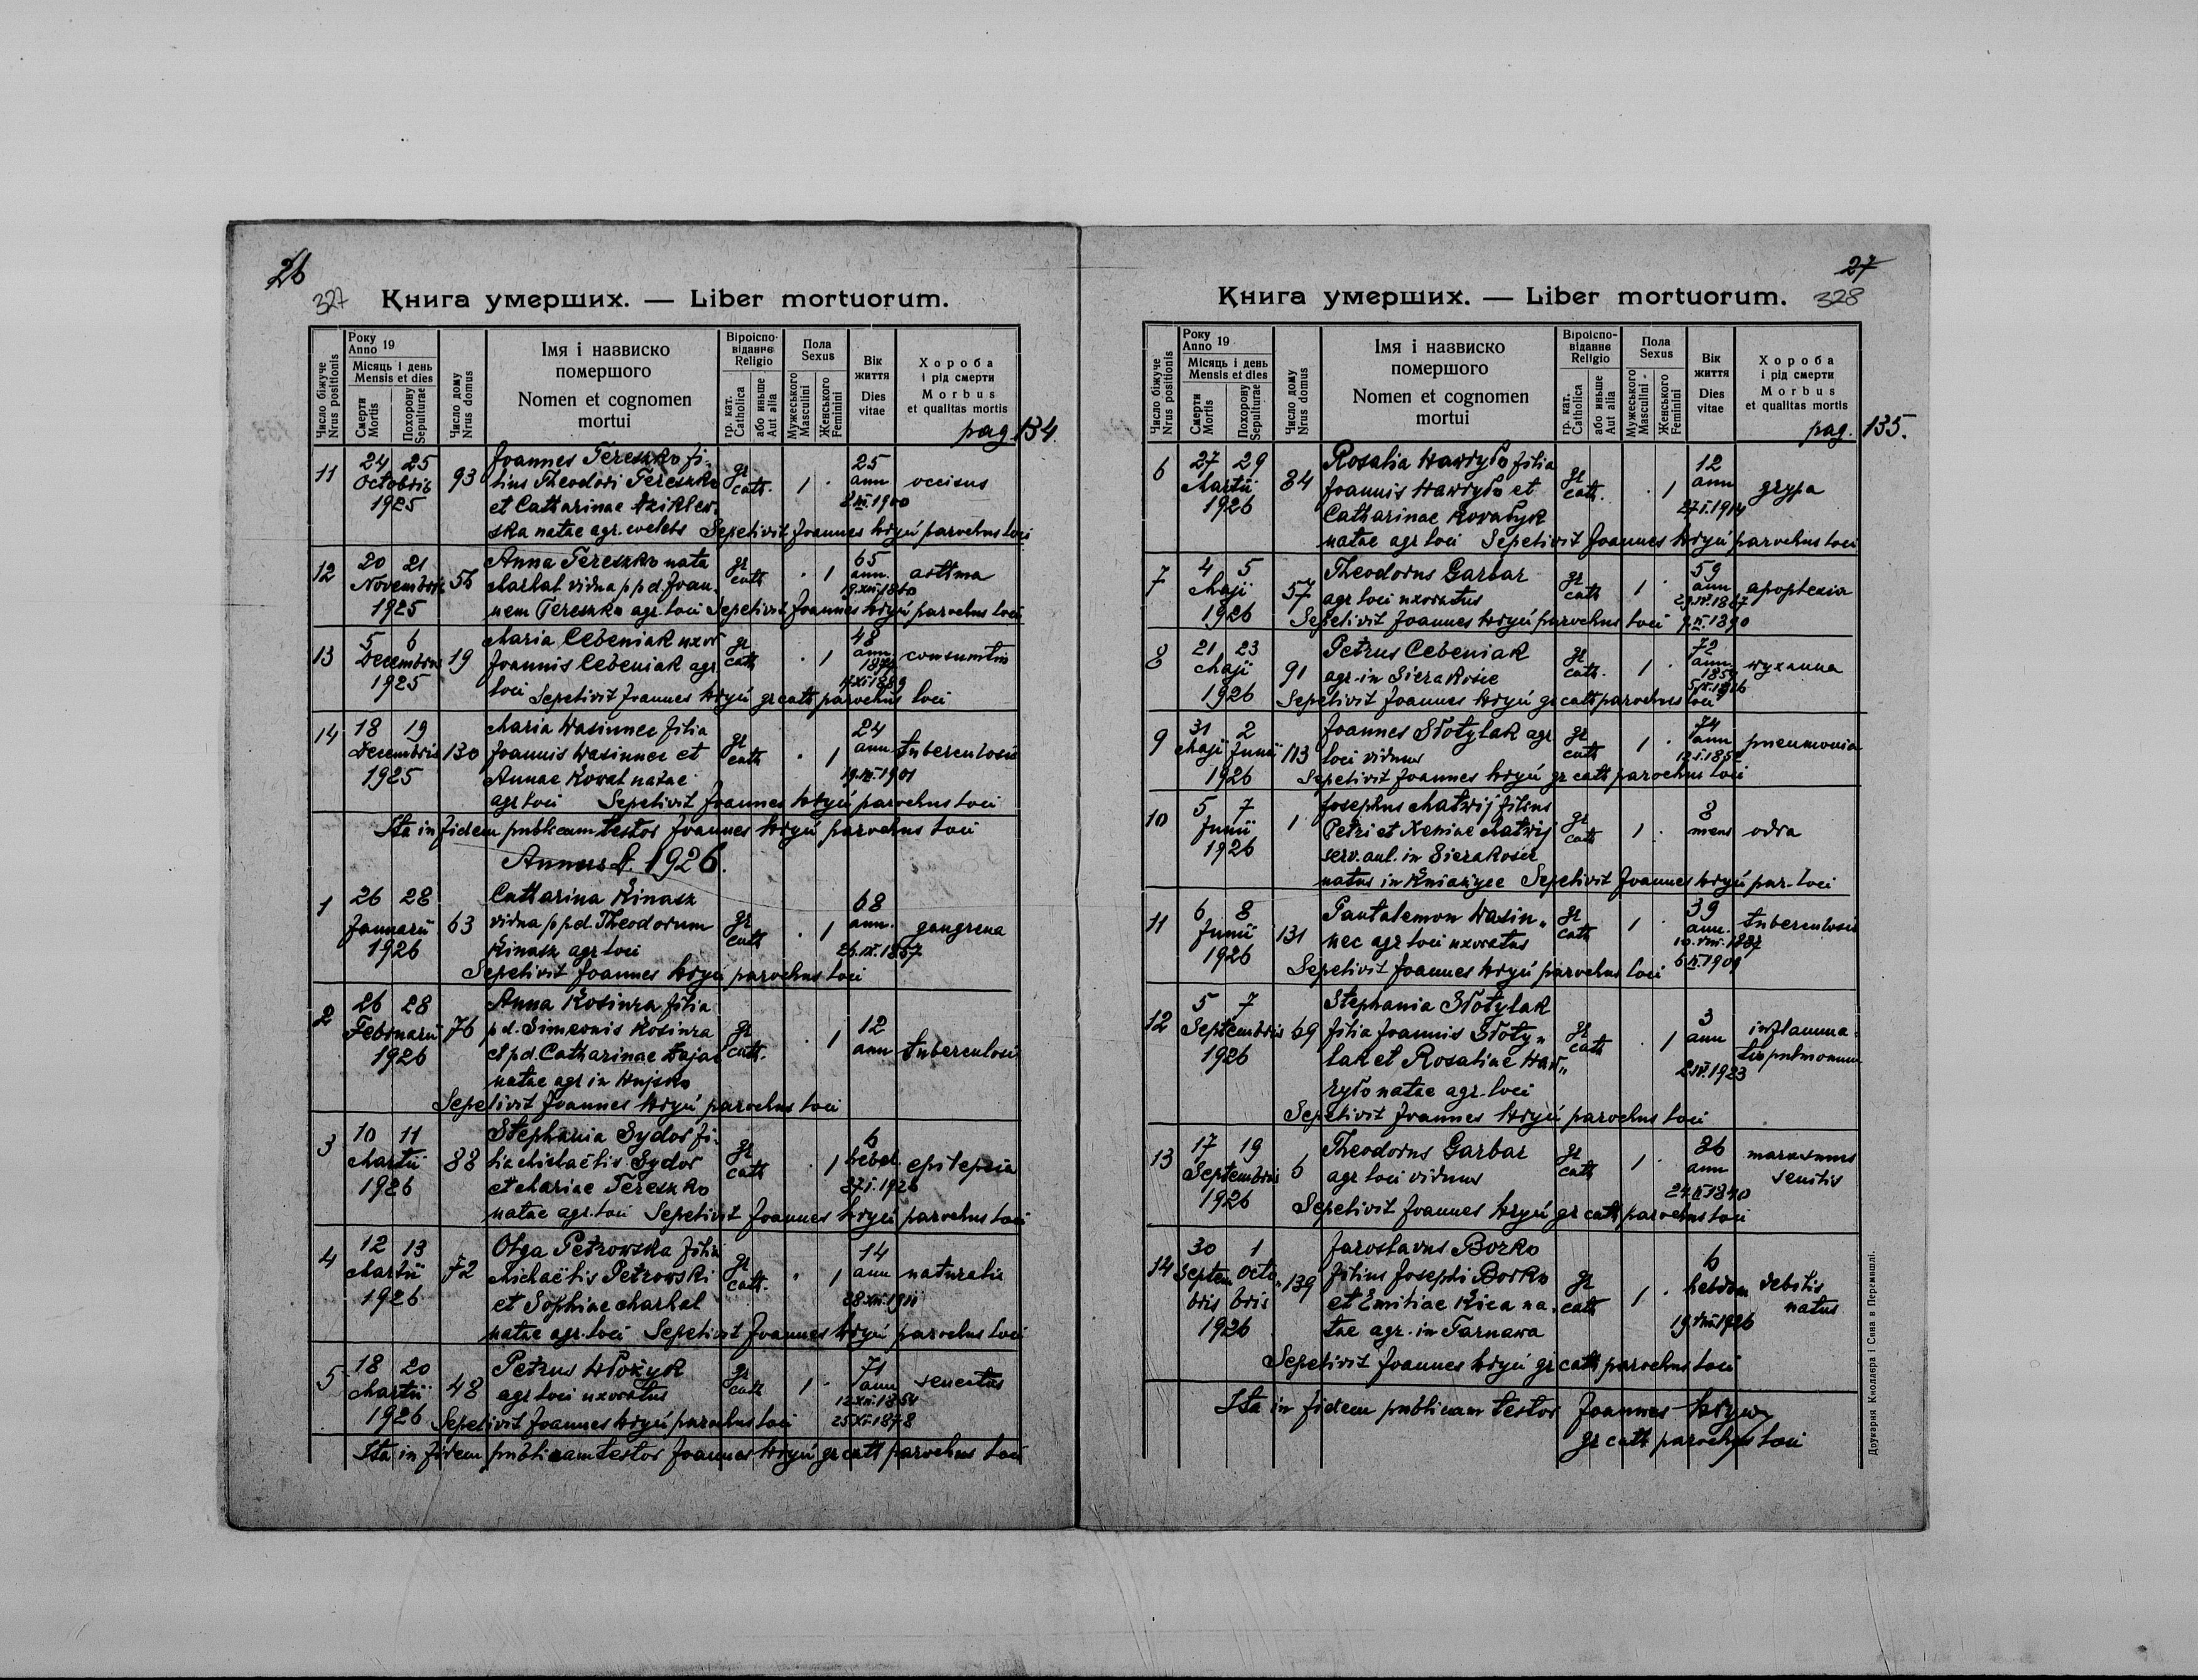 26
327
Книга умерших. — Liber mortuorum.
Число біжуче
Nrus positionis
Року
Anno 19
Місяць і день
Mensis et dies
Смерти
Mortis
Похорону
Sepulturae
Число дому
Nrus domus
Імя і назвиско
помершого
Nomen et cognomen
mortui
Віроіспо-
віданнє
Religio
гр. кат.
Catholica
або иньше
Aut alia
Пола
Sexus
Мужеського
Masculini
Женського
Feminini
Вік
життя
Dies
vitae
Хороба
і рід смерти
Morbus
et qualitas mortis
pag. 134.
11 24 25 Octobris 1925 93 Joannes Tereszko fi-
lius Theodori Tereszko gr cath. 1 · 25 ann occisus
et Catharinae 2 1900
ska natae agr. coelebs Sepelivit Joannes parochus loci
12 20 21 Novembris 1925 56 Anna Tereszko nata
Marhal vidua p p d. Joan- gr cath · 1 65 ann. asthma
nem Tereszko agr. loci Sepelivit Joannes parochus loci
13 5 6 Decembris 1925 19 Maria Cebeniak uxor
Joannis Cebeniak agr gr cath · 1 48 ann
loci Sepelivit Joannes gr cath parochus loci
14 18 19 Decembris 1925 130 Maria Wasinnec filia
Joannis Wasinnec et gr cath · 1 24 ann tuberculosis
Annae Kowal natae 1901
agr loci Sepelivit Joannes parochus loci
Ita in fidem publicam testor Joannes parochus loci
Annus D. 1926.
1 26 28 Januarii 1926 63 Catharina Kinasz
vidua p p d. Theodorum gr cath · 1 68 ann. gangrena
Kinasz agr loci
Sepelivit Joannes parochus loci
2 26 28 Februarii 1926 76 Anna Kosiura filia
p d. Simeonis Kosiura gr cath. · 1 12 ann tuberculosis
et p d. Catharinae
natae agr in Hujsko
Sepelivit Joannes parochus loci
3 10 11 Martii 1926 88 Stephania Sydor fi-
lia Michaëlis Sydor gr cath · 1 6 hebd. epilepsia
et Mariae Tereszko 27 I. 1926
natae agr. loci Sepelivit Joannes parochus loci
4 12 13 Martii 1926 72 Olga Petrowska filia
Michaëlis Petrowski gr cath. · 1 14 ann naturalis
et Sophiae Marhal 1911
natae agr. loci Sepelivit Joannes parochus loci
5 18 20 Martii 1926 48 Petrus Włożyk
agr loci uxoratus gr cath 1 · 71 ann senectus
12 XII. 1854
Sepelivit Joannes parochus loci 25 XI 1878
Ita in fidem publicam testor Joannes gr cath parochus loci
27
328
Книга умерших. — Liber mortuorum.
Число біжуче
Nrus positionis
Року
Anno 19
Місяць і день
Mensis et dies
Смерти
Mortis
Похорону
Sepulturae
Число дому
Nrus domus
Імя і назвиско
помершого
Nomen et cognomen
mortui
Віроіспо-
віданнє
Religio
гр. кат.
Catholica
або иньше
Aut alia
Пола
Sexus
Мужеського
Masculini
Женського
Feminini
Вік
життя
Dies
vitae
Хороба
і рід смерти
Morbus
et qualitas mortis
pag. 135.
6 27 29 Martii 1926 84 Rosalia Hawryło filia
Joannis Hawryło et gr cath. · 1 12 ann grypa
Catharinae Kowałyk 27 I. 1914
natae agr loci Sepelivit Joannes parochus loci
7 4 5 Maji 1926 57 Theodorus Garbar
agr loci uxoratus gr cath 1 · 59 ann apoplexia
Sepelivit Joannes parochus loci 1890
8 21 23 Maji 1926 91 Petrus Cebeniak
agr. in Sierakośce gr cath. 1 · 72 ann
Sepelivit Joannes gr cath parochus loci
9 31 2 Maji Junii 1926 113 Joannes Słotylak agr
loci viduus gr cath 1 · 74 ann pneumonia
Sepelivit Joannes gr cath parochus loci
10 5 7 Junii 1926 1 Josephus Matwij filius
Petri et Xeniae Matwij gr cath 1 · 8 mens odra
serv. aul. in Sierakośce
natus in Kniażyce Sepelivit Joannes par. loci
11 6 8 Junii 1926 131 Pantalemon Wasin-
nec agr loci uxoratus gr cath 1 · 39 ann. tuberculosis
10. VIII. 1887
Sepelivit Joannes parochus loci 1909
12 5 7 Septembris 1926 69 Stephania Słotylak
filia Joannis Słoty- gr cath · 1 3 ann inflamma-
lak et Rosaliae Haw- tio pulmonum
ryło natae agr. loci 1923
Sepelivit Joannes parochus loci
13 17 19 Septembris 1926 6 Theodorus Garbar
agr loci viduus gr cath 1 · 86 ann marasmus
senilis
1840
Sepelivit Joannes gr cath parochus loci
14 30 1 Septem- Octo-
bris bris 1926 139 Jaroslavus Borko
filius Josephi Borko gr cath 1 · 6 hebdom debilis
et Emiliae Kica na- natus
tae agr. in Tarnawa 19 VIII 1926
Sepelivit Joannes gr cath parochus loci
Ita in fidem publicam testor Joannes
gr cath parochus loci
Друкарня Кнолlера і Сина в Перемишлі.